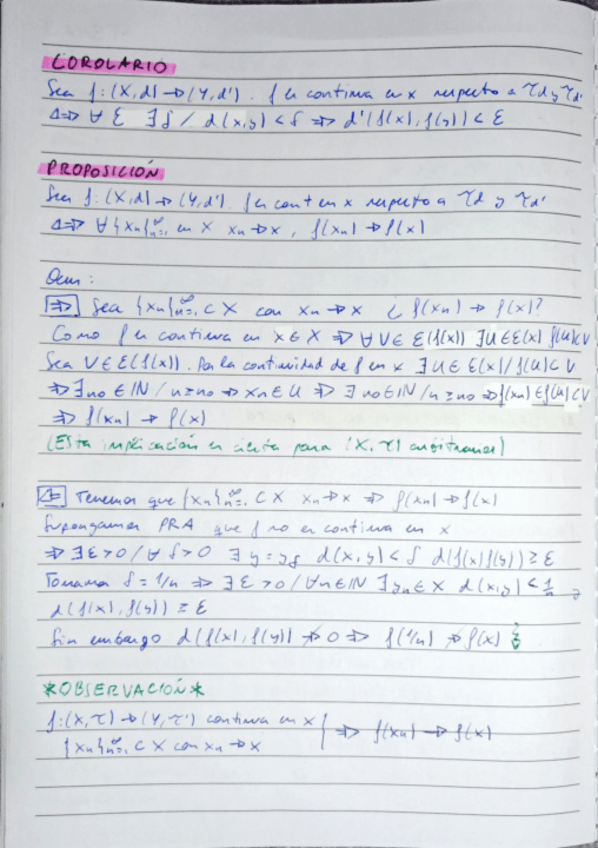 COROLARIO
Sea f: (X,d) → (Y,d'). f es continua en x respecto a τd y τd'
⇔ ∀ ε ∃ δ / d(x,y) < δ ⇒ d'(f(x), f(y)) < ε
PROPOSICIÓN
Sea f: (X,d) → (Y,d'). f es cont en x respecto a τd y τd'
⇔ ∀ {xn}∞n=1 en X xn → x, f(xn) → f(x)
Dem:
⇒ Sea {xn}∞n=1 ⊂ X con xn → x ¿ f(xn) → f(x)?
Como f es continua en x ∈ X ⇒ ∀ V ∈ E(f(x)) ∃ U ∈ E(x) f(U) ⊂ V
Sea V ∈ E(f(x)). Por la continuidad de f en x ∃ U ∈ E(x) / f(U) ⊂ V
⇒ ∃ no ∈ IN / n ≥ no ⇒ xn ∈ U ⇒ ∃ no ∈ IN / n ≥ no ⇒ f(xn) ∈ f(U) ⊂ V
⇒ f(xn) → f(x)
(Esta implicación es cierta para (X, τ) arbitrarios)
⇐ Tenemos que {xn}∞n=1 ⊂ X xn → x ⇒ f(xn) → f(x)
Supongamos PRA que f no es continua en x
⇒ ∃ ε > 0 / ∀ δ > 0 ∃ y = yδ d(x,y) < δ d(f(x) f(y)) ≥ ε
Tomamos δ = 1/n ⇒ ∃ ε > 0 / ∀n ∈ IN ∃ yn ∈ X d(x,y) < 1/n y
d(f(x), f(y)) ≥ ε
Sin embargo d(f(x), f(y)) ↛ 0 ⇒ f(1/n) ↛ f(x)
*OBSERVACIÓN*
f: (X, τ) → (Y, τ') continua en x } ⇒ f(xn) → f(x)
{xn}∞n=1 ⊂ X con xn → x